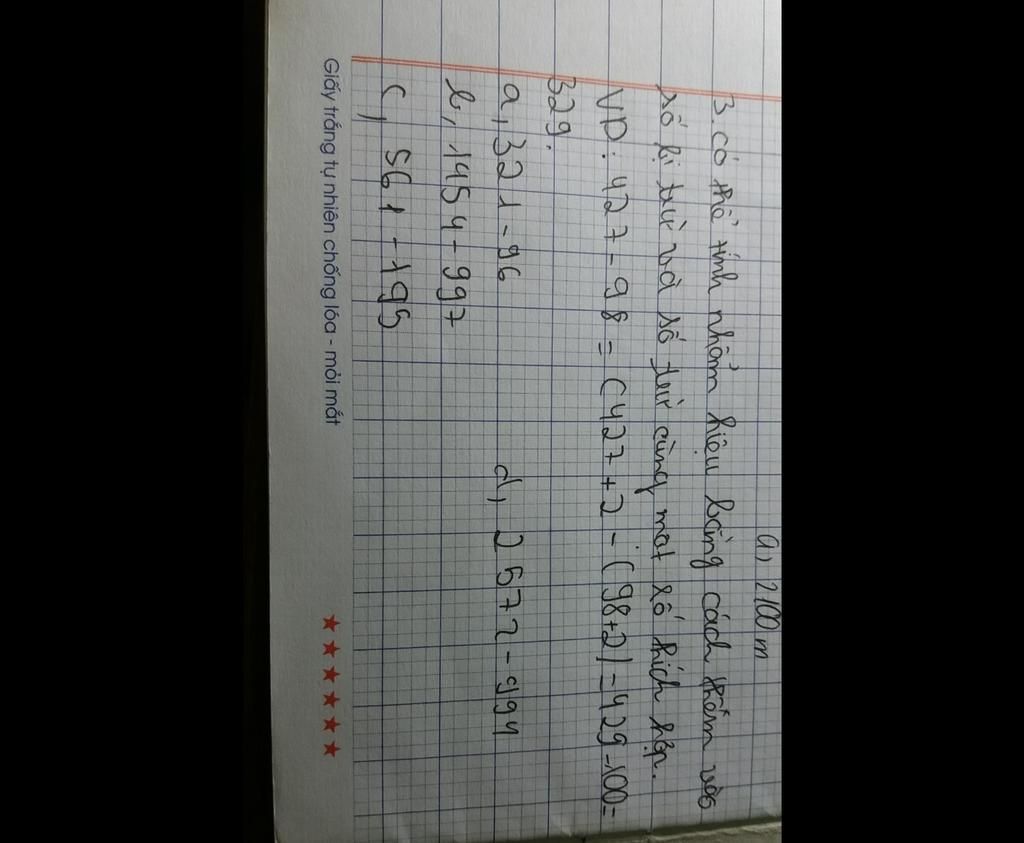 a, 2100 m
3. có thể tính nhẩm hiệu bằng cách thêm vào
số bị trừ và số trừ cùng một số thích hợp.
VD: 427 - 98 = (427 + 2 - (98+2) = 429 - 100 =
329.
a, 321 - 96 d, 2572 - 994
b, 1454 - 997
c, 561 - 195
Giấy trắng tự nhiên chống lóa - mỏi mắt